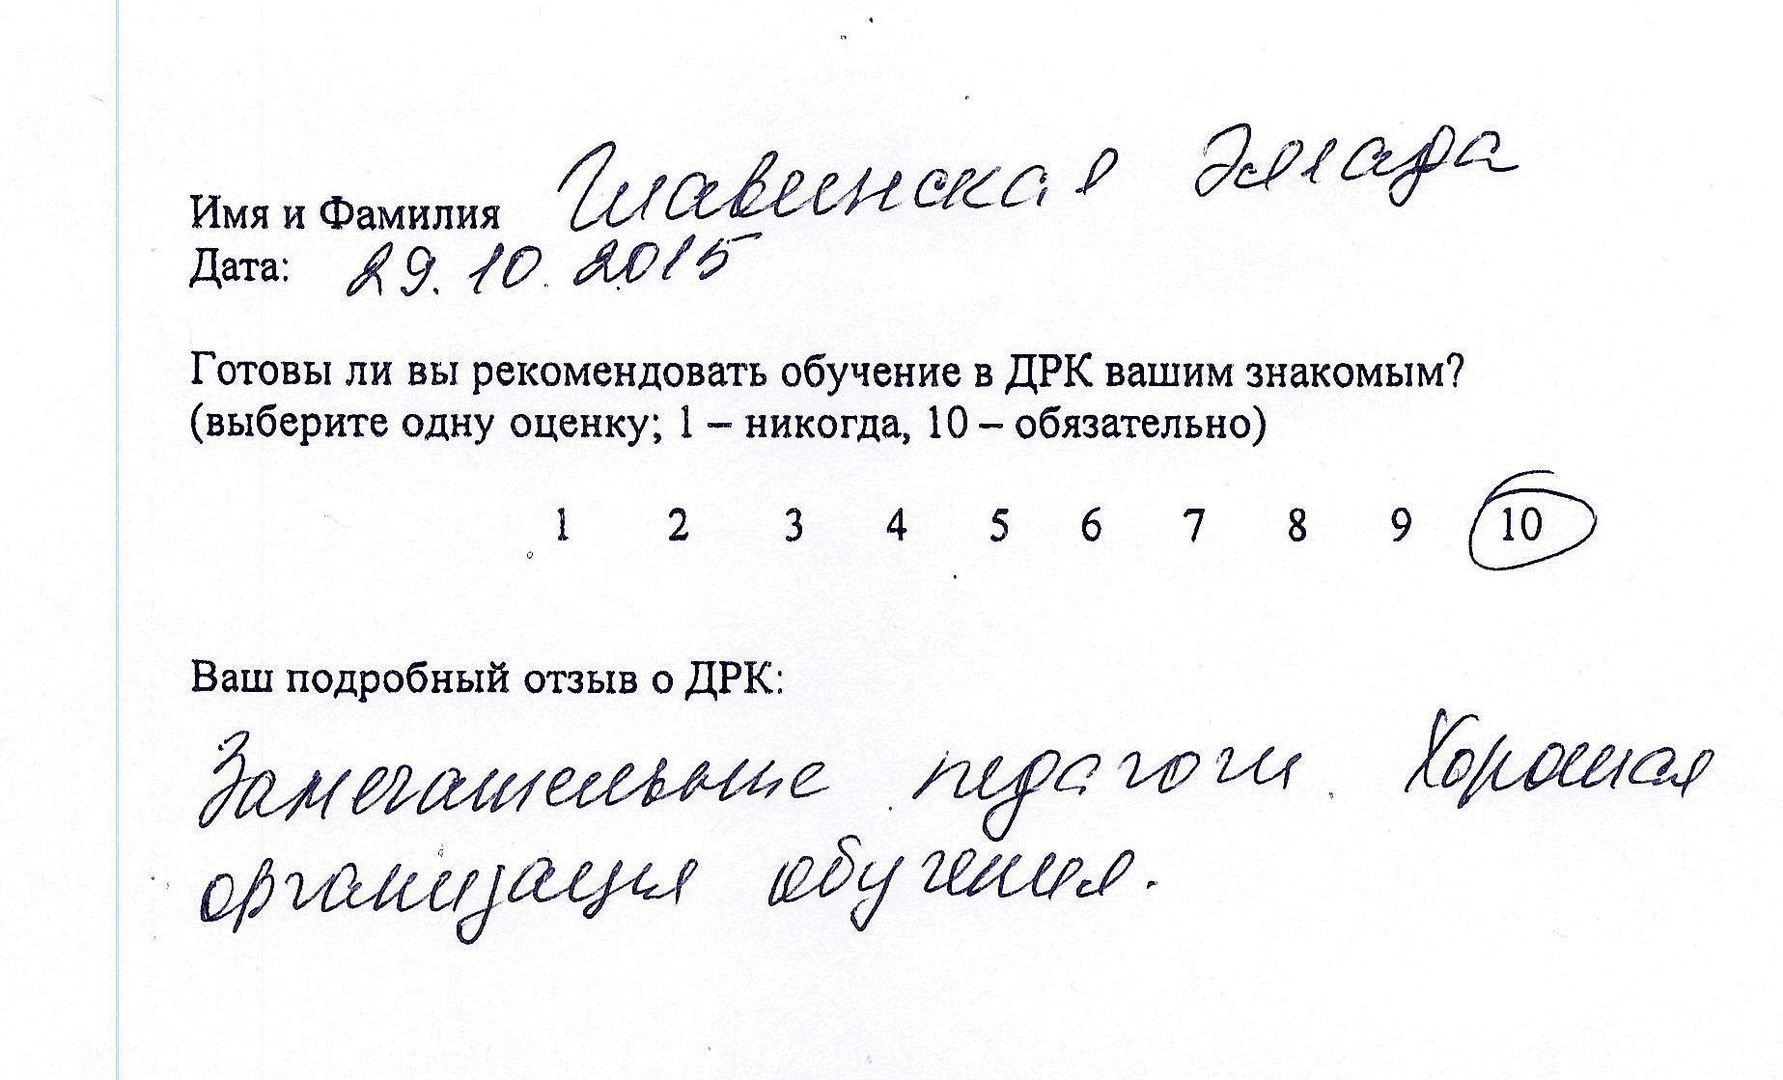 Имя и Фамилия Шавинская Эллада
Дата: 29.10.2015
Готовы ли вы рекомендовать обучение в ДРК вашим знакомым?
(выберите одну оценку; 1 – никогда, 10 – обязательно)
1 2 3 4 5 6 7 8 9 10
Ваш подробный отзыв о ДРК:
Замечательные педагоги. Хорошая
организация обучения.